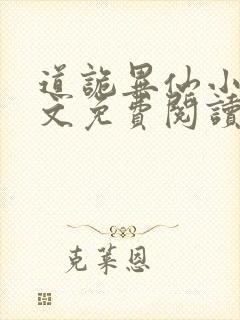 道詭異仙小
文免費閱讀
克萊恩